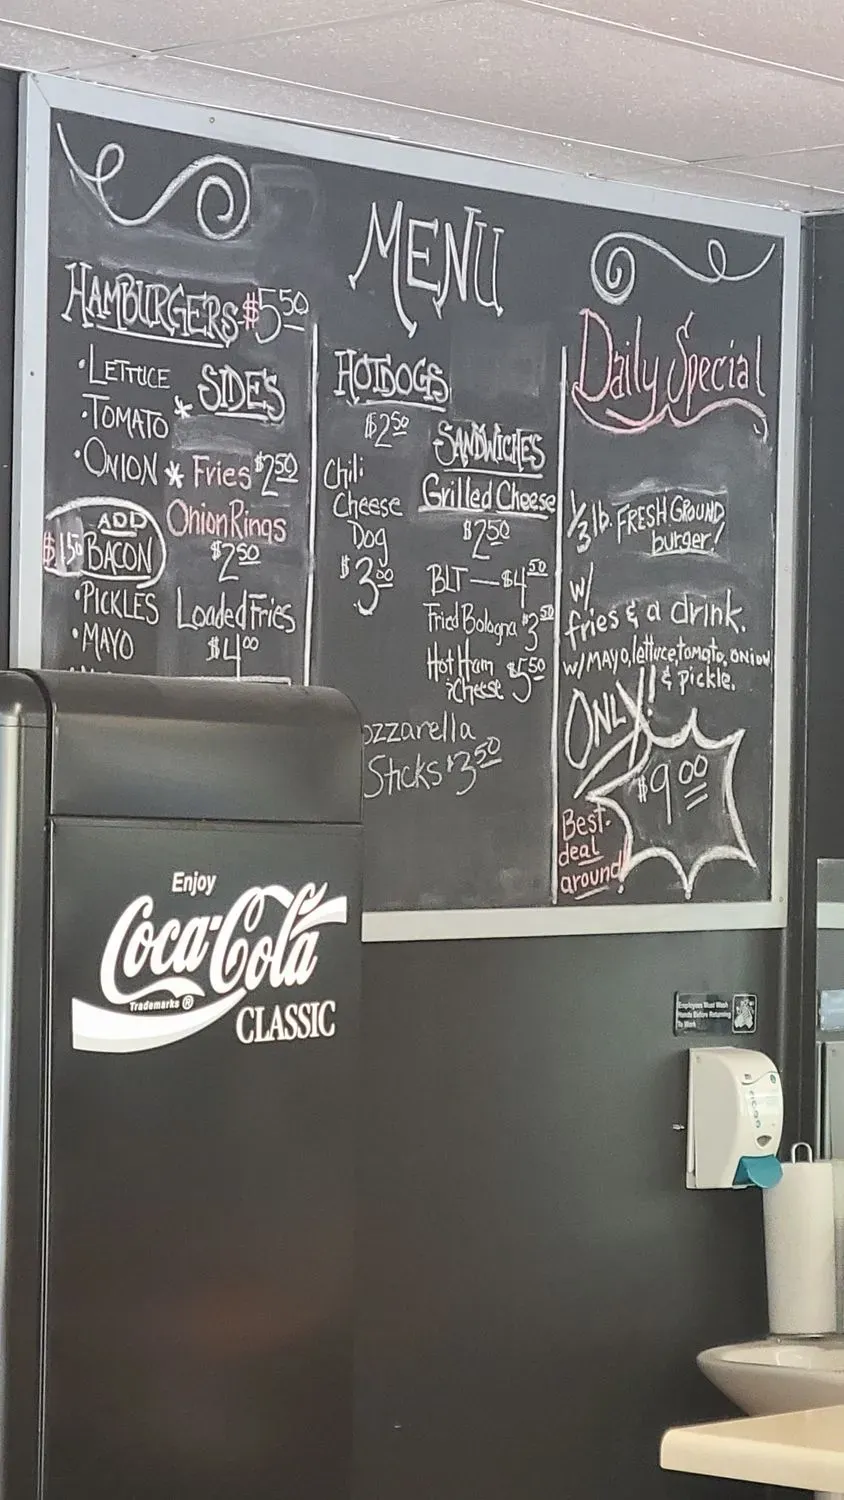 MENU
HAMBURGERS-$5.50
• LETTUCE
• TOMATO
• ONION
ADD
$1.50 BACON
• PICKLES
• MAYO
* SIDES
* Fries $2.50
Onion Rings
$2.50
Loaded Fries
$4.00
HOTDOGS
$2.50
Chili
Cheese
Dog
$3.00
SANDWICHES
Grilled Cheese
$2.50
BLT — $4.50
Fried Bologna $3.50
Hot Ham
& Cheese $5.50
ozzarella
Sticks $3.50
Daily Special
1/3 lb. FRESH GROUND
burger!
w/
fries & a drink.
w/MAYO, lettuce, tomato, ONION
& pickle.
ONLY!
$9.00
Best
deal
around!
Enjoy
Coca-Cola
Trademarks ®
CLASSIC
Employees Must Wash
Hands Before Returning
To Work